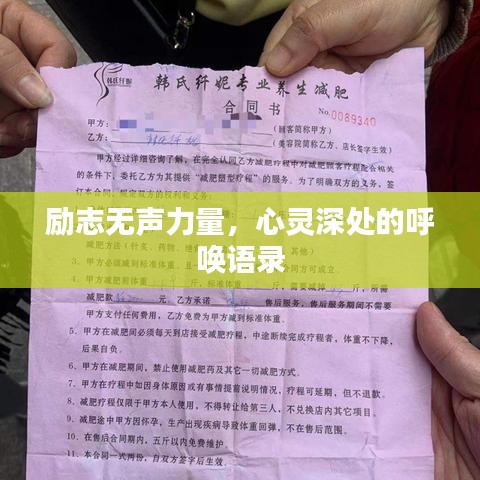 韩氏纤妮专业养生减肥
合同书
No.0089340
甲方：
（顾客简称甲方）
乙方：
（美容院简称乙方、店长签字生效）
甲方经过详细咨询了解，在完全认同乙方减肥疗程中对减肥顾客疗程配合相关
的条件下，委托乙方为其提供“减肥塑型疗程”的服务。为了明确双方的义务，签
励志无声力量，心灵深处的呼
唤语录
支付任何费用，乙方免费为甲方减到标准体重。
5、甲方在减肥期间必须每天到店接受减肥疗程，中途断续完成疗程者，体重不下降，
后果自负。
6、甲方在减肥期间，禁止使用减肥药及其它一切减肥方式。
7、甲方在疗程中如因身体原因或有事情提前说明情况，疗程可延期，但不退款。
8、减肥疗程仅限于甲方本人使用，不得转让给第三人，不兑换店内其它项目。
9、减肥途中甲方因怀孕，生产出现疾病导致体重回弹，不在售后范围。
10、在售后合同期内，五斤以内免费维护。
11、本合同一式两份，自双方签字后生效。